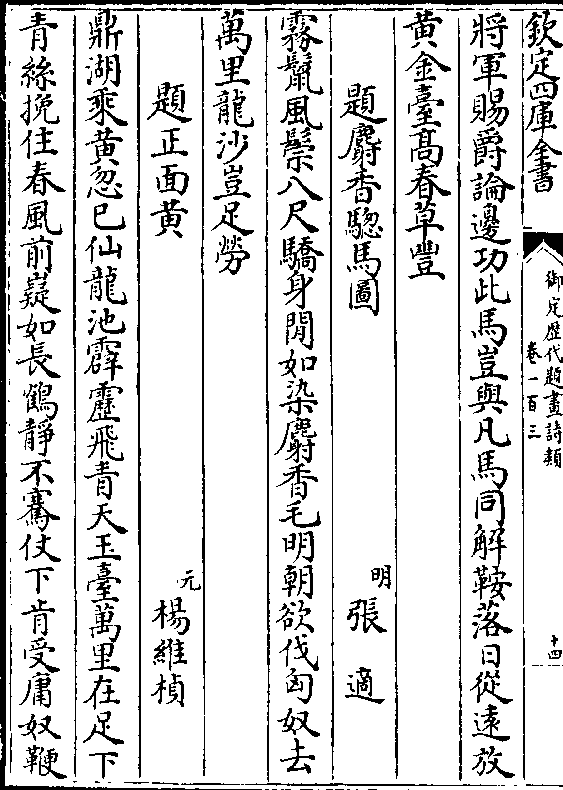 欽定四庫全書
御定歷代題畫詩類
卷一百三
十四
將軍賜爵論邊功此馬豈與凡馬同解鞍落日從遠放
黃金臺髙春草豐
題麝香驄馬圖
明 張適
霧鬛風鬃八尺驕身閒如染麝香毛明朝欲伐匈奴去
萬里龍沙豈足勞
題正面黃
元 楊維楨
鼎湖乘黃忽已仙龍池霹靂飛青天玉臺萬里在足下
青絲挽住春風前嶷如長鶴靜不騫仗下肯受庸奴鞭